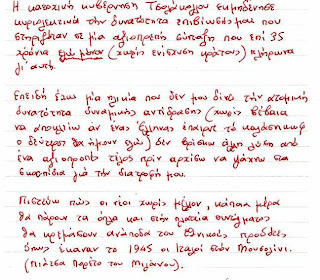 Η κατοχική κυβέρνηση Τσολάκογλου εκμηδένισε
κυριολεκτικά την δυνατότητα επιβίωσής μου που
στηριζόταν σε μία αξιοπρεπή σύνταξη που επί 35
χρόνια εγώ μόνον (χωρίς ενίσχυση κράτους) πλήρωνα
γι' αυτή.
Επειδή έχω μια ηλικία που δεν μου δίνει την ατομική
δυνατότητα δυναμικής αντίδρασης (χωρίς βέβαια
να αποκλείω αν ένας Έλληνας έπαιρνε το καλάσνικωφ
ο δεύτερος θα ήμουν εγώ) δεν βρίσκω άλλη λύση από
ένα αξιοπρεπές τέλος πριν αρχίσω να ψάχνω στα
σκουπίδια για την διατροφή μου.
Πιστεύω πως οι νέοι χωρίς μέλλον, κάποια μέρα
θα πάρουν τα όπλα και στην πλατεία συντάγματος
θα κρεμάσουν ανάποδα τους εθνικούς προδότες
όπως έκαναν το 1945 οι Ιταλοί στον Μουσολίνι.
(Πιάτσα Πορέτο του Μιλάνου).